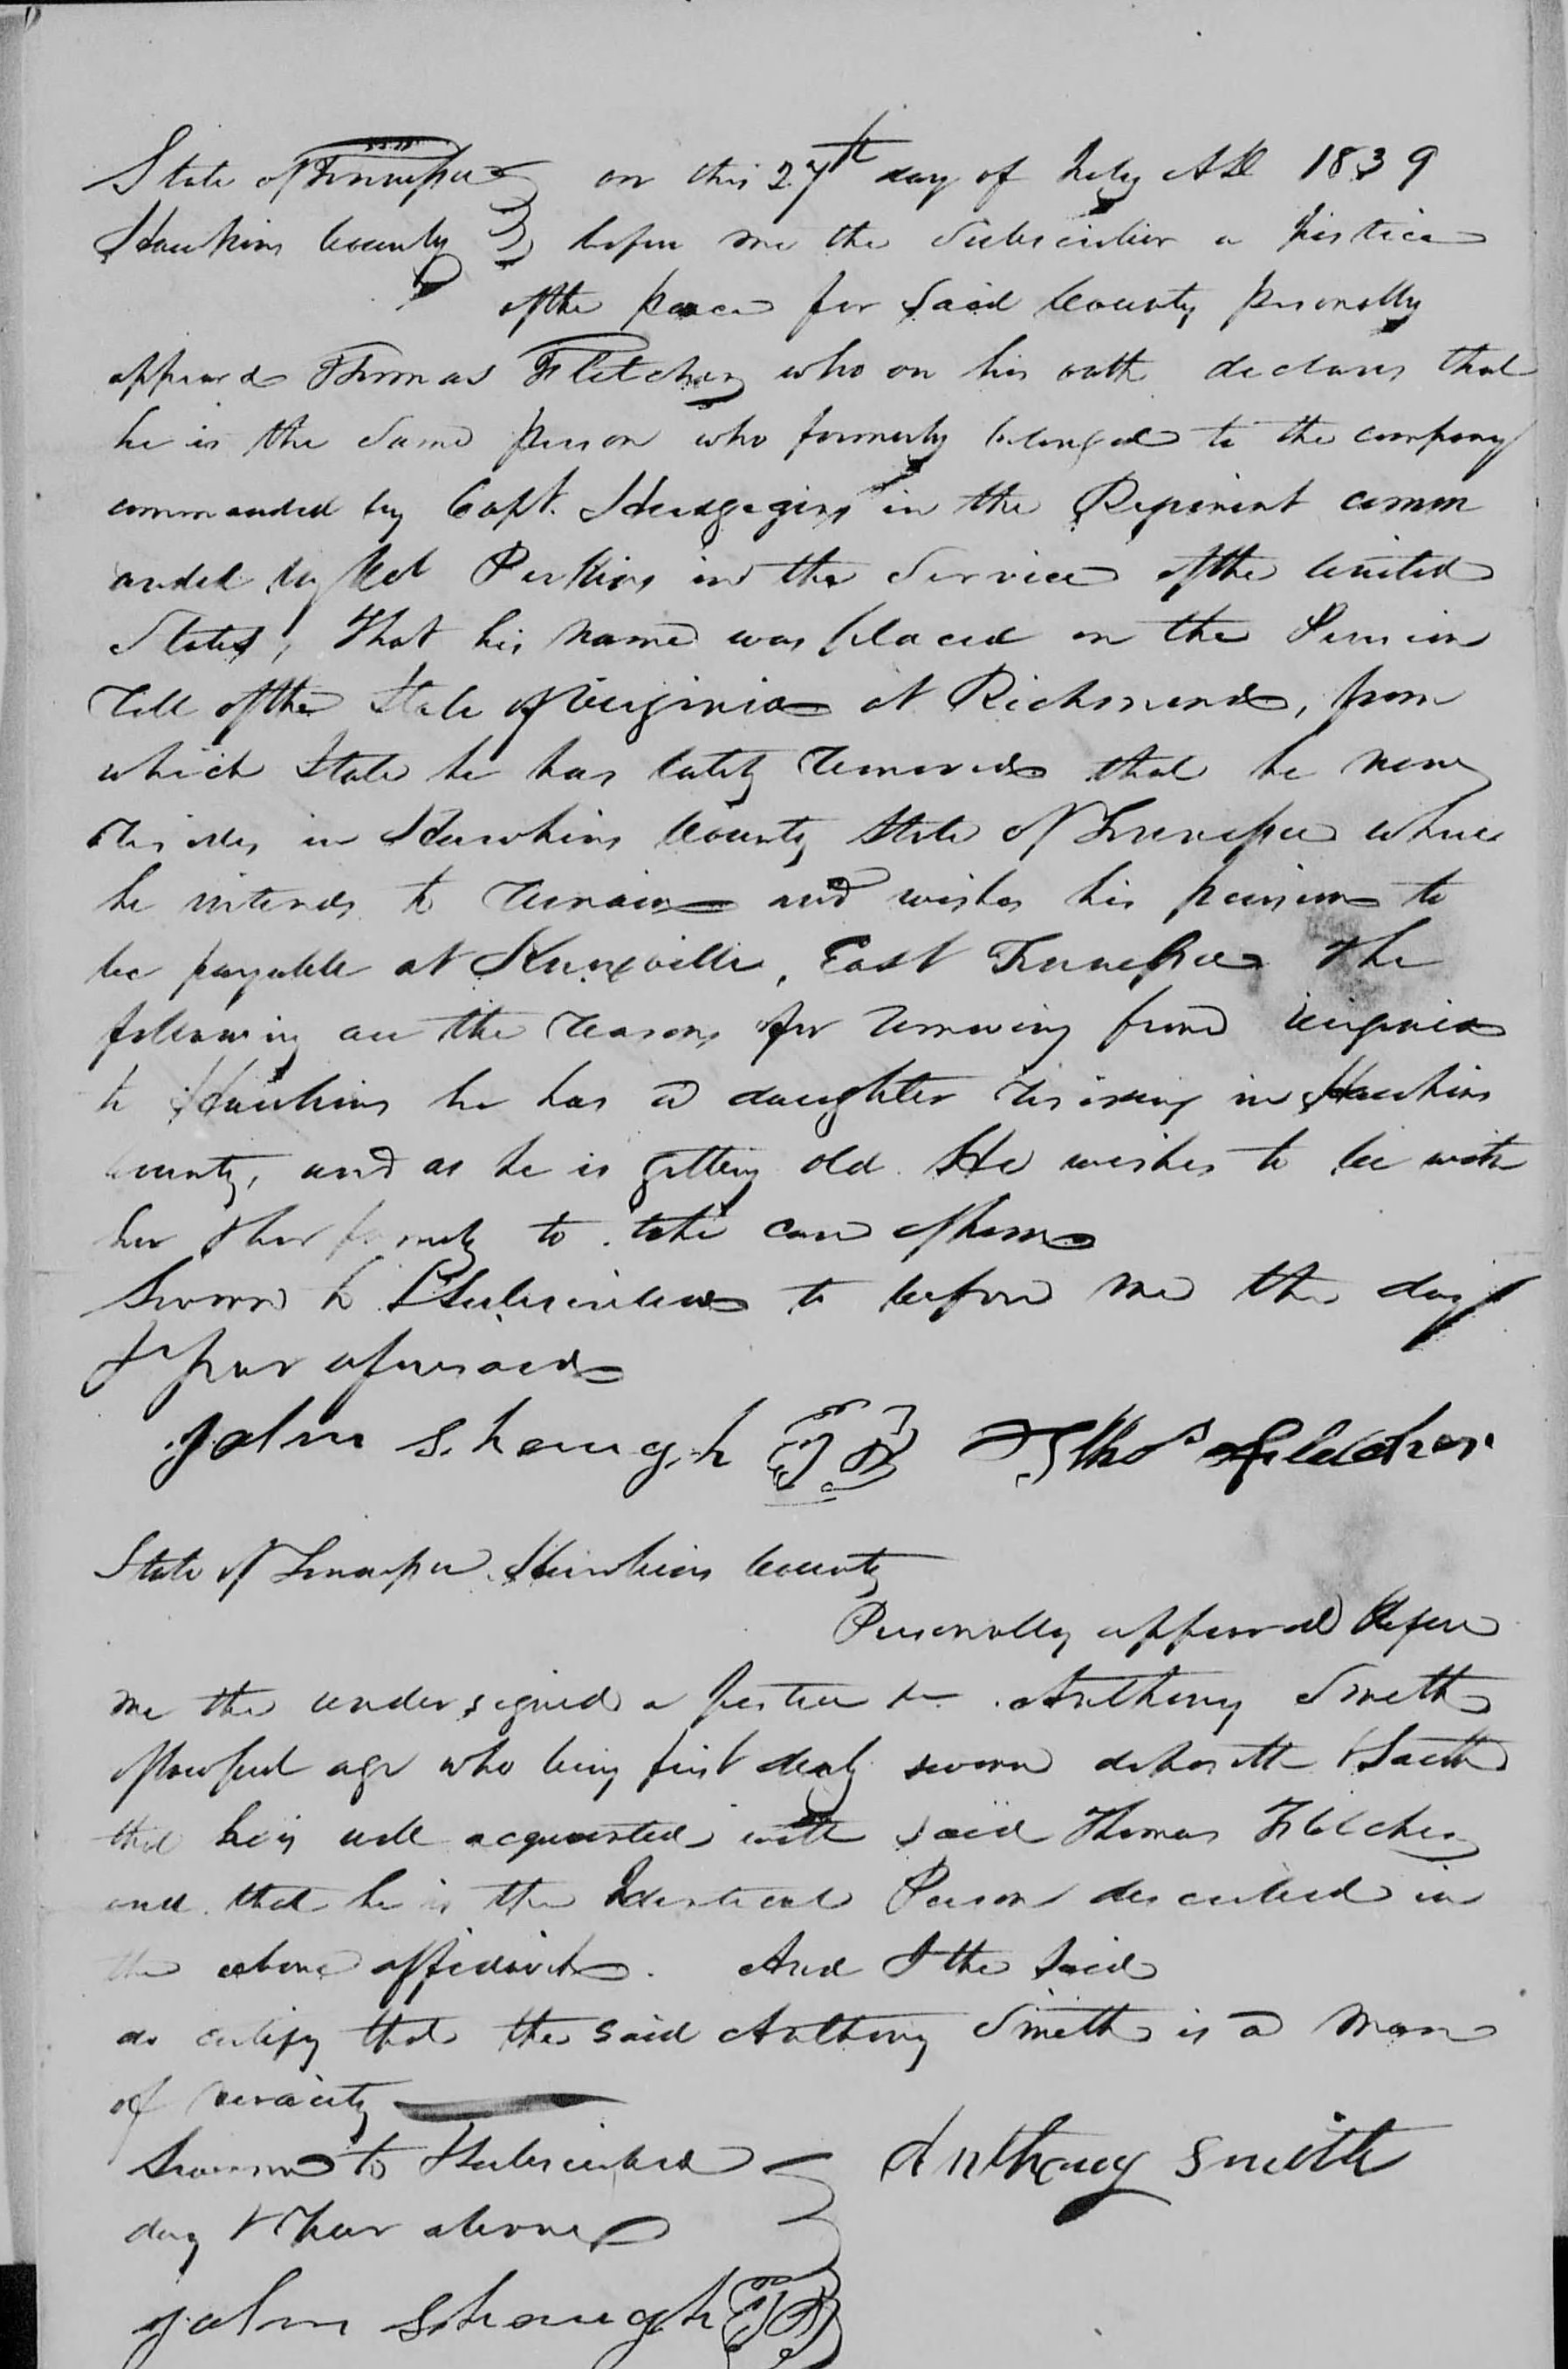 State of Tennessee } on this 27th day of July AD 1839
Hawkins County } before me the Subscriber a Justice
of the peace for Said County personally
appeared Thomas Fletcher who on his oath declares that
he is the Same person who formerly belonged to the company
commanded by Capt. Hudgegins in the Regiment comm
anded by Col Perkins in the Service of the United
States, That his name was placed on the Pension
Roll of the State of Virginia at Richmond, from
which State he has lately removed that he now
resides in Hawkins County State of Tennessee where
he intends to remain and wishes his pension to
be payable at Knoxville, East Tennessee The
following are the reasons for removing from Virginia
to Hawkins he has a daughter residing in Hawkins
County, and as he is getting old He wishes to be with
her & her family to take care of him
Sworn to & Subscribed to before me the day
& year aforesaid
John Shaugh JP Thos Fletcher
State of Tennessee Hawkins County
Personally appeared before
me the undersigned a Justice &c Anthony Smith
of lawful age who being first duly sworn deposeth & Saith
that he is well acquainted with said Thomas Fletcher
and that he is the Identical Person described in
the above affidavit. And I the Said
do certify that the said Anthony Smith is a man
of veracity
Sworn to & Subscribed } Anthony Smith
day & Year above
John Shaugh JP